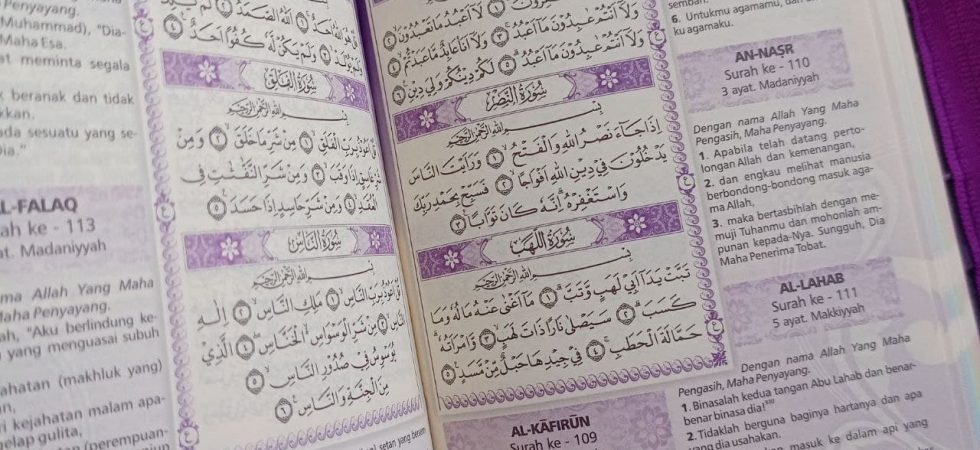 لَآ اَعْبُدُ مَا تَعْبُدُوْنَۙ ٢
وَلَآ اَنْتُمْ عٰبِدُوْنَ مَآ اَعْبُدُۚ ٣ وَلَآ اَنَا۠ عَابِدٌ مَّا عَبَدْتُّمْۙ ٤
وَلَآ اَنْتُمْ عٰبِدُوْنَ مَآ اَعْبُدُۗ ٥ لَكُمْ دِيْنُكُمْ وَلِيَ دِيْنِ ٦
سُوْرَةُ النَّصْرِ
بِسْمِ اللّٰهِ الرَّحْمٰنِ الرَّحِيْمِ
اِذَا جَاۤءَ نَصْرُ اللّٰهِ وَالْفَتْحُۙ ١ وَرَاَيْتَ النَّاسَ
يَدْخُلُوْنَ فِيْ دِيْنِ اللّٰهِ اَفْوَاجًاۙ ٢ فَسَبِّحْ بِحَمْدِ رَبِّكَ
وَاسْتَغْفِرْهُۗ اِنَّهٗ كَانَ تَوَّابًا ٣
سُوْرَةُ اللَّهَبِ
بِسْمِ اللّٰهِ الرَّحْمٰنِ الرَّحِيْمِ
تَبَّتْ يَدَآ اَبِيْ لَهَبٍ وَّتَبَّۗ ١ مَآ اَغْنٰى عَنْهُ مَالُهٗ وَمَا
كَسَبَۗ ٢ سَيَصْلٰى نَارًا ذَاتَ لَهَبٍۙ ٣ وَّامْرَاَتُهٗۗ
حَمَّالَةَ الْحَطَبِۚ ٤ فِيْ جِيْدِهَا حَبْلٌ مِّنْ مَّسَدٍ ٥
AL-KĀFIRŪN
Surah ke - 109
6. Untukmu agamamu, dan
ku agamaku.
AN-NAṢR
Surah ke - 110
3 ayat. Madaniyyah
Dengan nama Allah Yang Maha
Pengasih, Maha Penyayang.
1. Apabila telah datang perto-
longan Allah dan kemenangan,
2. dan engkau melihat manusia
berbondong-bondong masuk aga-
ma Allah,
3. maka bertasbihlah dengan me-
muji Tuhanmu dan mohonlah am-
punan kepada-Nya. Sungguh, Dia
Maha Penerima Tobat.
AL-LAHAB
Surah ke - 111
5 ayat. Makkiyyah
Dengan nama Allah Yang Maha
Pengasih, Maha Penyayang.
1. Binasalah kedua tangan Abu Lahab dan benar-
benar binasa dia!
2. Tidaklah berguna baginya hartanya dan apa
yang dia usahakan.
masuk ke dalam api yang
قُلْ هُوَ اللّٰهُ اَحَدٌۚ ١ اَللّٰهُ الصَّمَدُۚ ٢ لَمْ يَلِدْ
وَلَمْ يُوْلَدْۙ ٣ وَلَمْ يَكُنْ لَّهٗ كُفُوًا اَحَدٌ ٤
سُوْرَةُ الْفَلَقِ
بِسْمِ اللّٰهِ الرَّحْمٰنِ الرَّحِيْمِ
قُلْ اَعُوْذُ بِرَبِّ الْفَلَقِۙ ١ مِنْ شَرِّ مَا خَلَقَۙ ٢ وَمِنْ
شَرِّ غَاسِقٍ اِذَا وَقَبَۙ ٣ وَمِنْ شَرِّ النَّفّٰثٰتِ فِى
الْعُقَدِۙ ٤ وَمِنْ شَرِّ حَاسِدٍ اِذَا حَسَدَ ٥
سُوْرَةُ النَّاسِ
بِسْمِ اللّٰهِ الرَّحْمٰنِ الرَّحِيْمِ
قُلْ اَعُوْذُ بِرَبِّ النَّاسِۙ ١ مَلِكِ النَّاسِۙ ٢ اِلٰهِ
النَّاسِۙ ٣ مِنْ شَرِّ الْوَسْوَاسِ ەۙ الْخَنَّاسِۖ ٤ الَّذِيْ
يُوَسْوِسُ فِيْ صُدُوْرِ النَّاسِۙ ٥
مِنَ الْجِنَّةِ وَالنَّاسِ ٦
Penyayang.
Muhammad), "Dia-
Maha Esa.
at meminta segala
k beranak dan tidak
kkan.
ada sesuatu yang se-
Dia."
L-FALAQ
ah ke - 113
at. Madaniyyah
ama Allah Yang Maha
Maha Penyayang.
ah, "Aku berlindung ke-
yang menguasai subuh
ahatan (makhluk yang)
an,
ri kejahatan malam apa-
gelap gulita,
(perempuan-
setan yang bersem